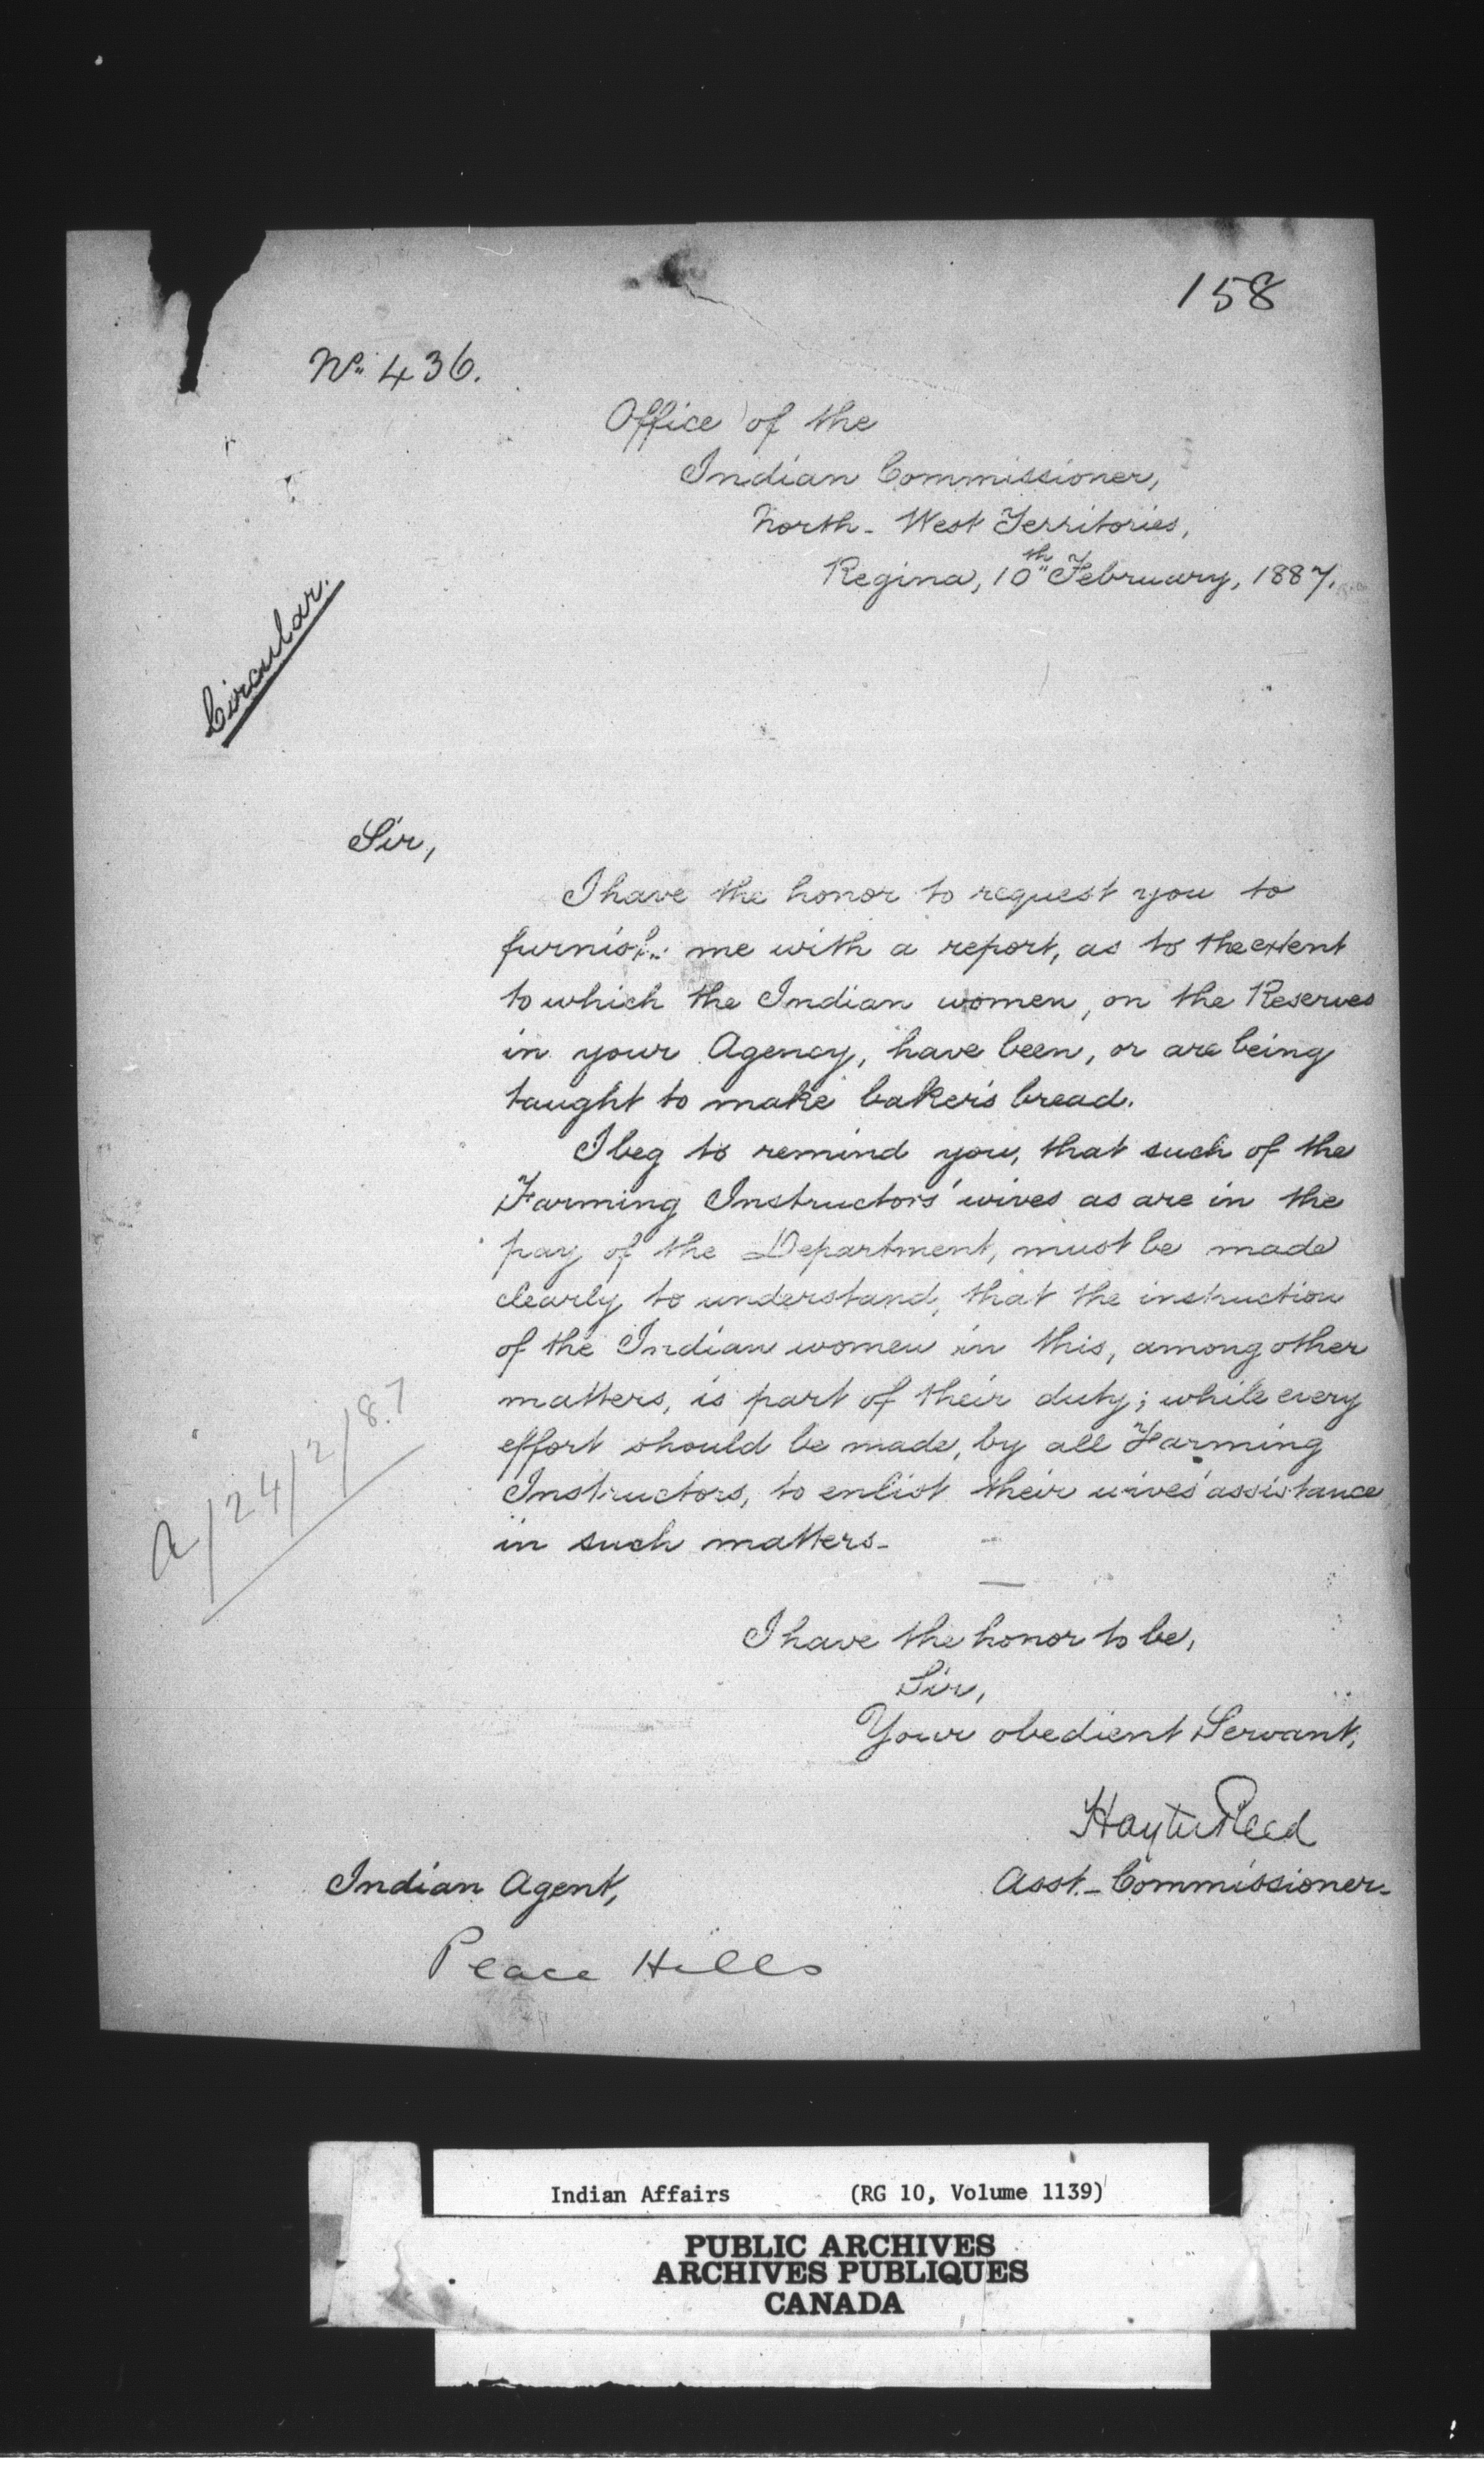 158
No. 436.
Office of the
Indian Commissioner,
North-West Territories,
Regina, 10th February, 1887.
Circular.
Sir,
I have the honor to request you to
furnish me with a report, as to the extent
to which the Indian women, on the Reserves
in your Agency, have been, or are being
taught to make baker's bread.
I beg to remind you, that such of the
Farming Instructors' wives as are in the
pay of the Department, must be made
clearly to understand, that the instruction
of the Indian women in this, among other
matters, is part of their duty; while every
effort should be made, by all Farming
Instructors, to enlist their wives' assistance
in such matters-
a/24/2/87
I have the honor to be,
Sir,
Your obedient Servant,
Hayter Reed
Asst.-Commissioner-
Indian Agent,
Peace Hills
Indian Affairs (RG 10, Volume 1139)
PUBLIC ARCHIVES
ARCHIVES PUBLIQUES
CANADA